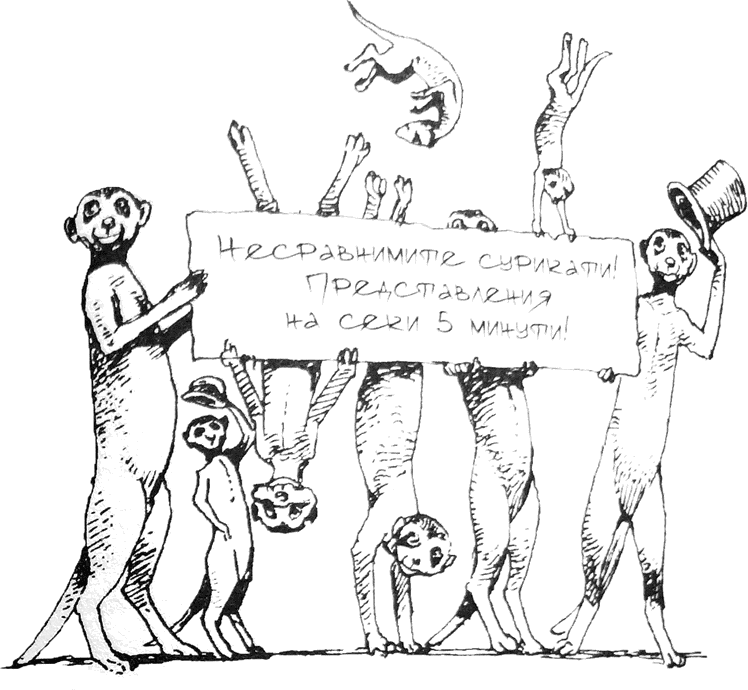 Несравнимите сурикати!
Представления
на секи 5 минути!